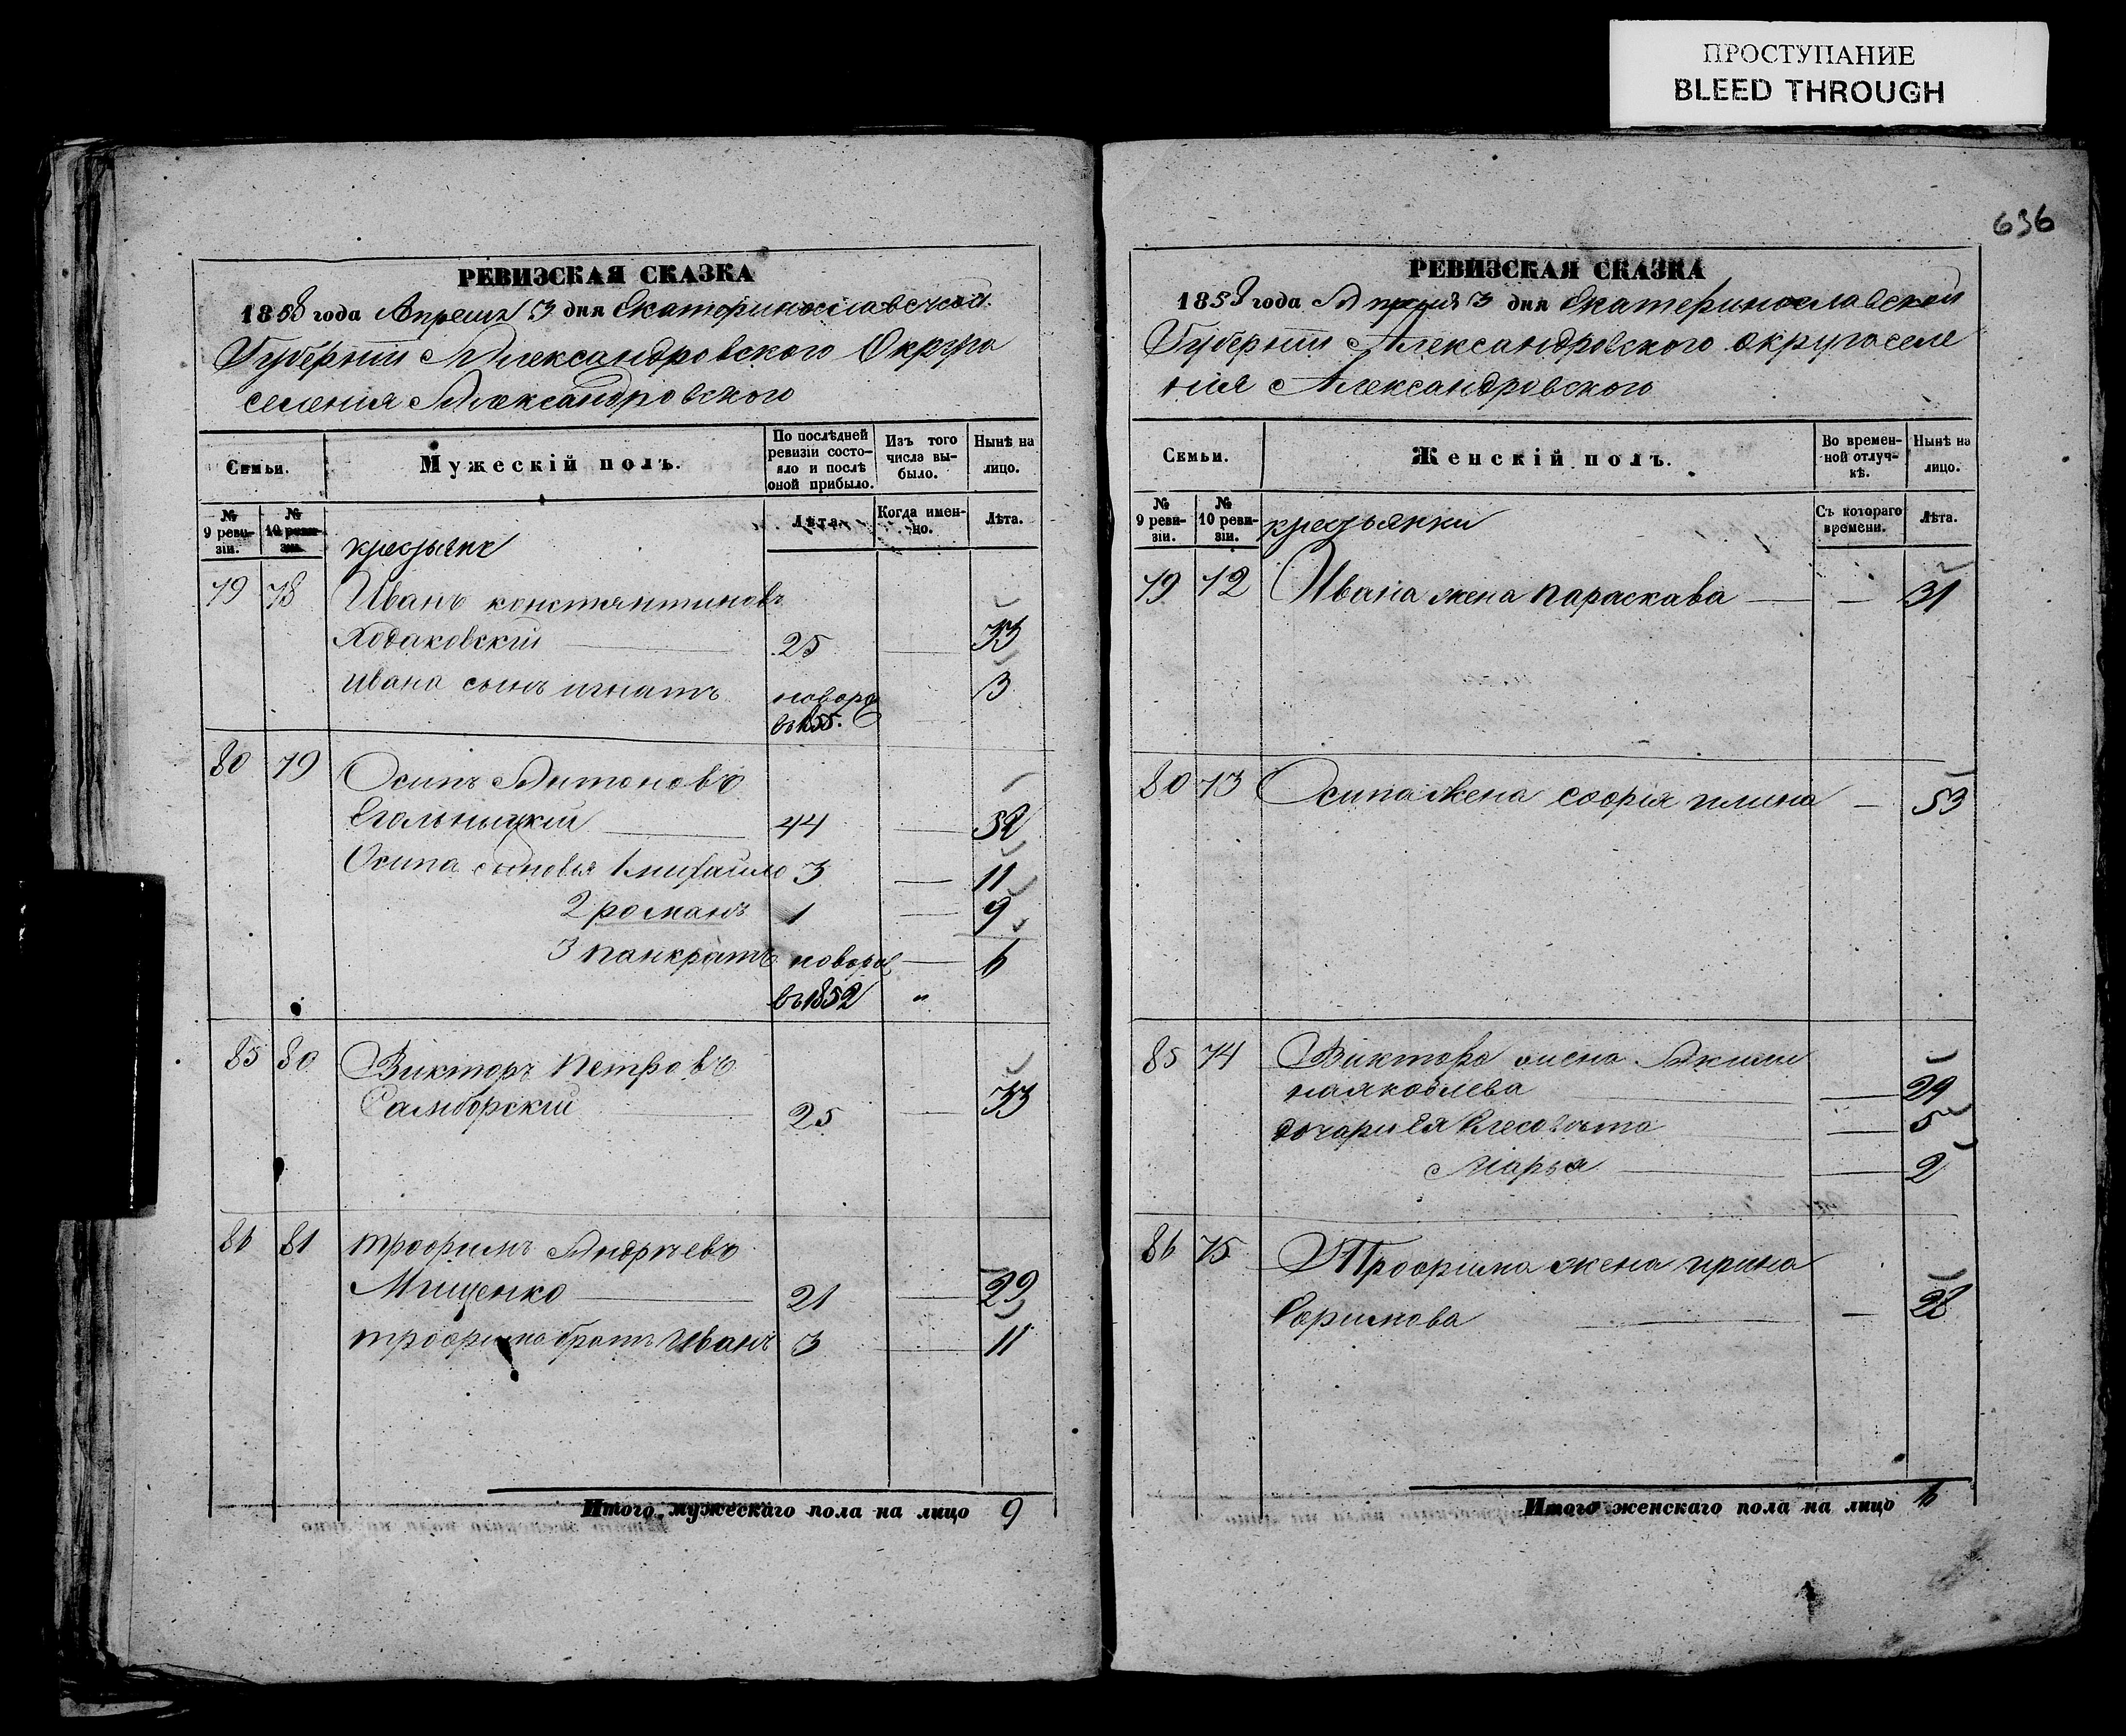 ПРОСТУПАНИЕ
BLEED THROUGH
РЕВИЗСКАЯ СКАЗКА
1858 года Апреля 3 дня Екатеринославской
Губернии Александровского Округа
селения Александровского
Семьи.
Мужескій полъ.
По послѣдней ревизіи состояло и послѣ оной прибыло.
Изъ того числа выбыло.
Нынѣ на лицо.
№ 9 ревизіи.
№ 10 ревизіи.
Лѣта.
Когда именно.
Лѣта.
крестьяне
79 78 Иванъ константиновъ
Ходаковскій 25 33
ивана сынъ игнатъ новорож 3
въ 855.
80 79 Осипъ Антоновъ
44 52
Осипа сыновья 1 михайло 3 11
2 романъ 1 9
3 панкратъ новорож 6
въ 1852 "
85 80 Викторъ Петровъ
Самборскій 25 33
86 81 трофимъ Андрѣевъ
Мищенко 21 29
трофима братъ Иванъ 3 11
Итого мужескаго пола на лицо 9
636
РЕВИЗСКАЯ СКАЗКА
1858 года Апреля 3 дня Екатеринославской
Губернии Александровского округа селе
ния Александровского
Семьи.
Женскій полъ.
Во временной отлучкѣ.
Нынѣ на лицо.
№ 9 ревизіи.
№ 10 ревизіи.
Съ котораго времени.
Лѣта.
крестьянки
79 72 Ивана жена параскава 31
80 73 Осипа жена софія 53
85 74 Виктора жена Акили
на яковлева 29
дочери Ея Елесовета 5
Марья 2
86 75 Трофима жена ирина
Ефимова 28
Итого женскаго пола на лицо 6